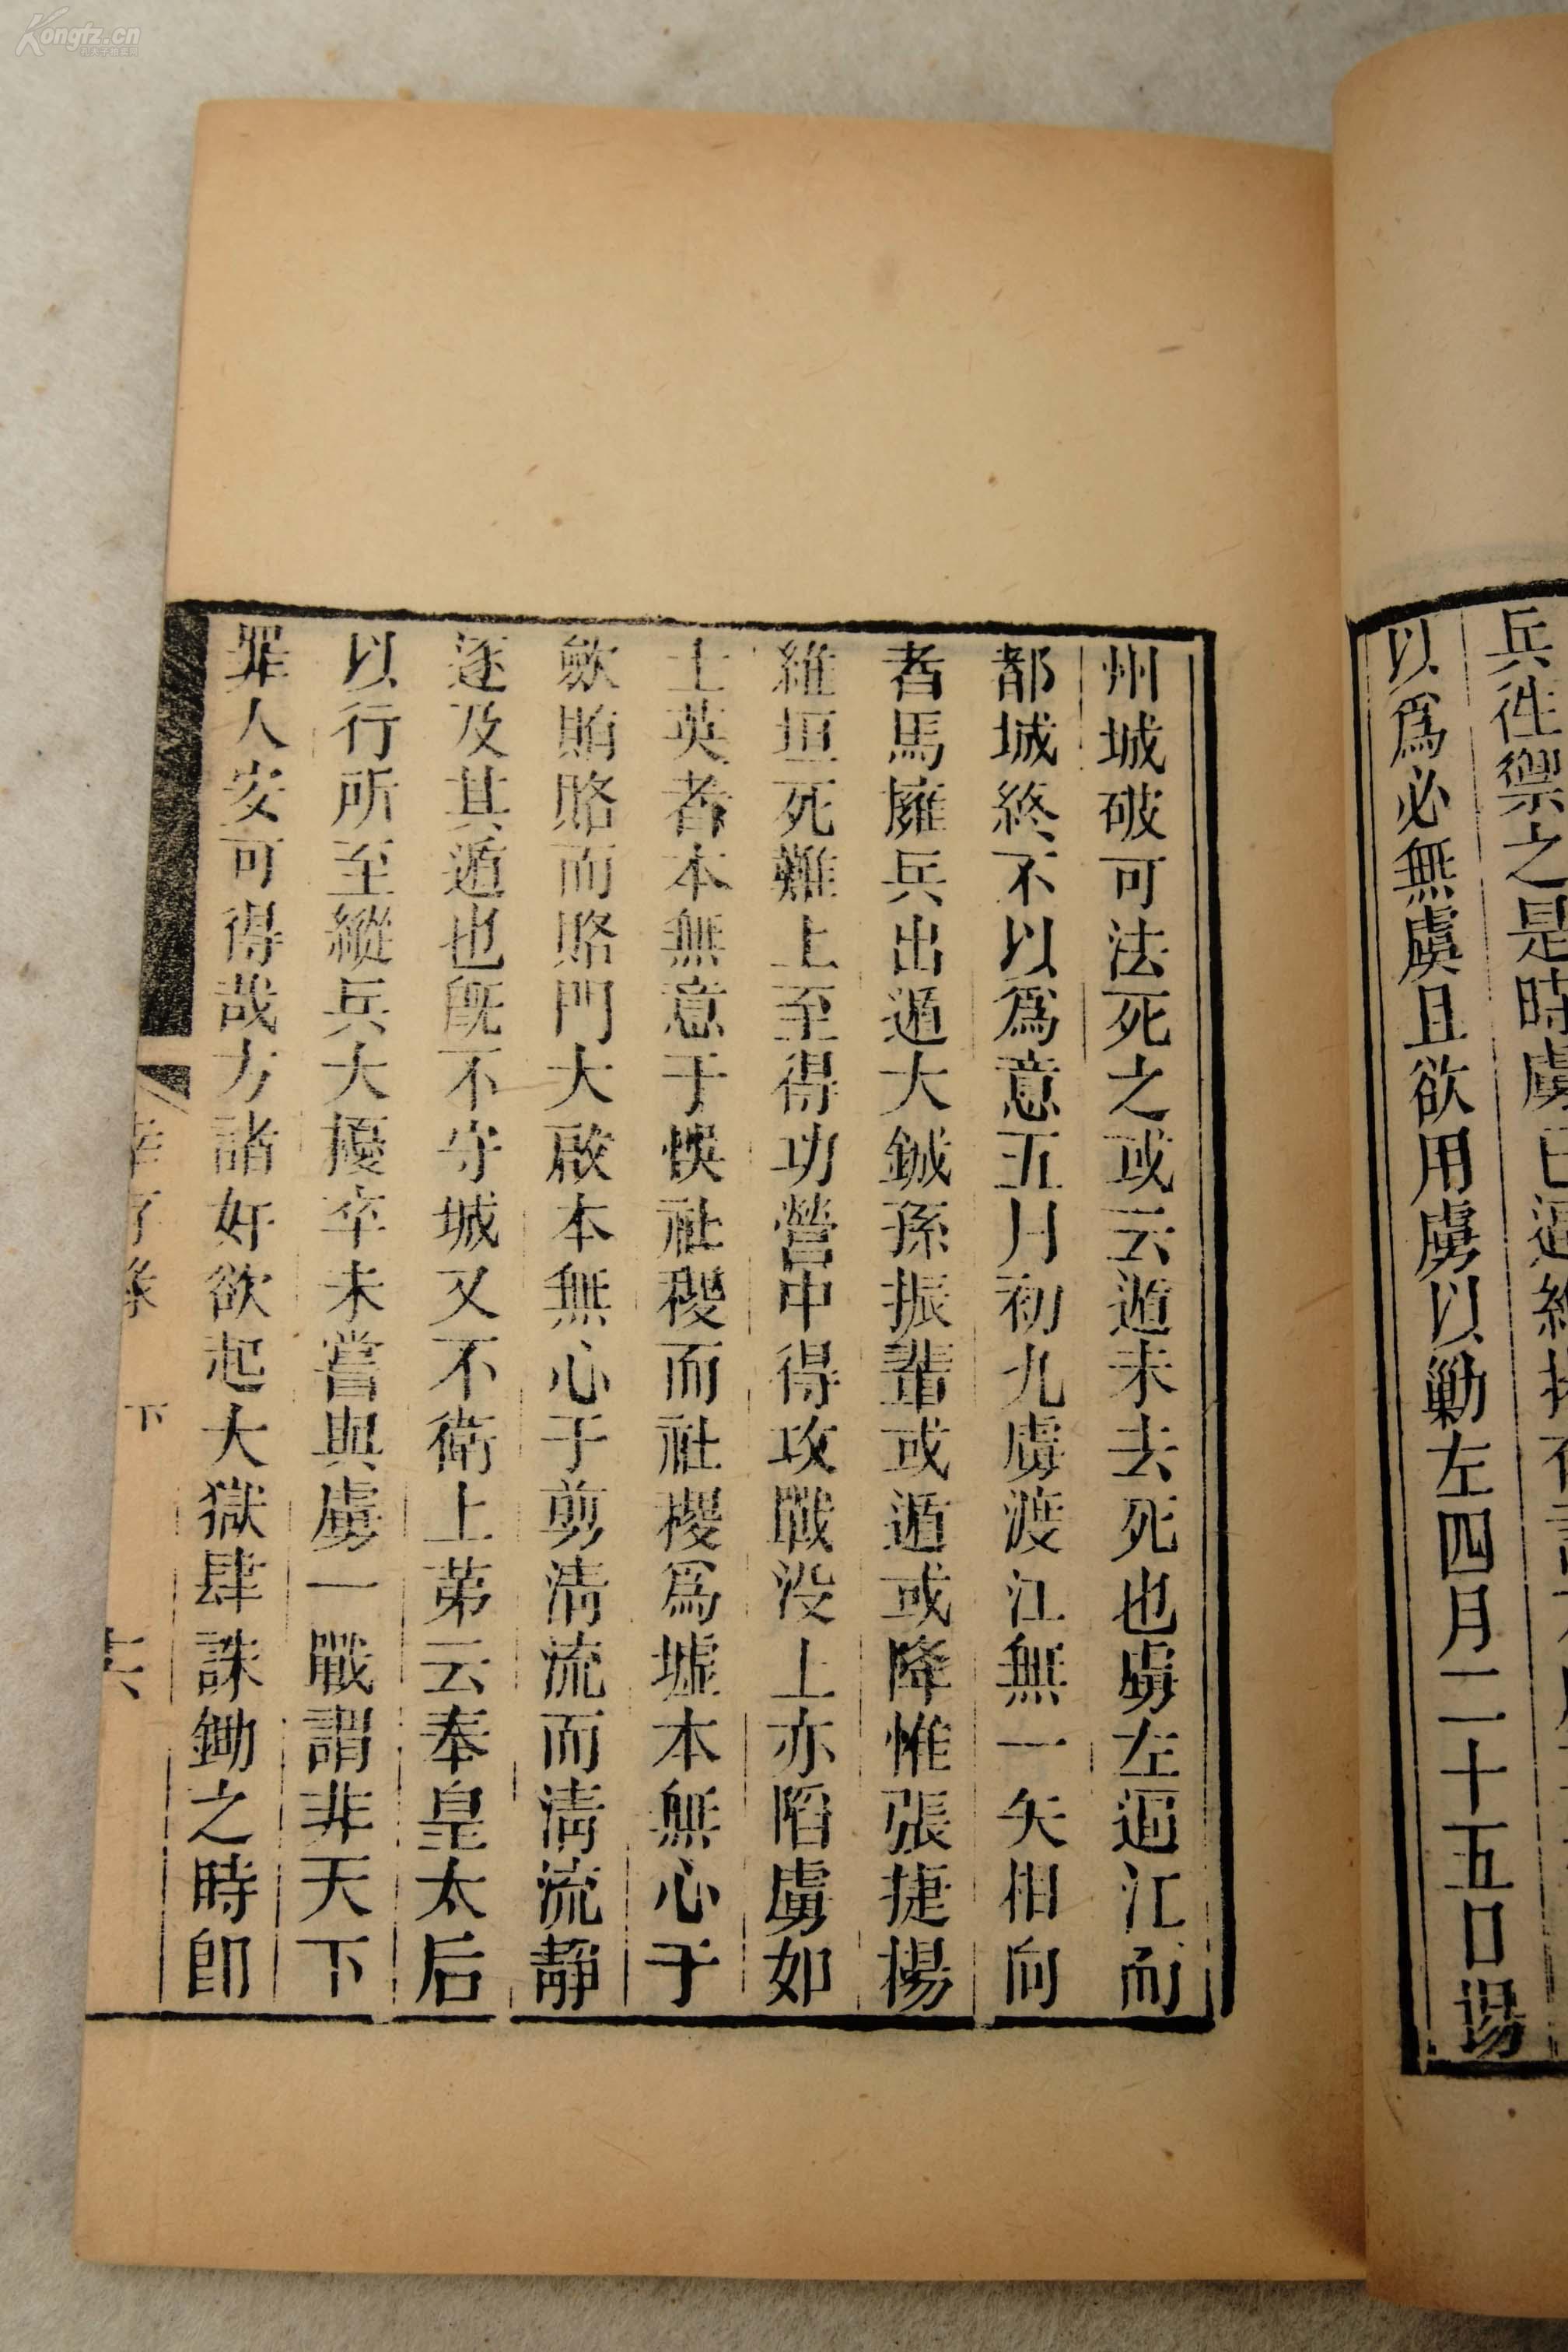 Kongfz.cn
兵徃禦之是時虜已逼
以爲必無虞且欲用虜以勦左四月二十五日揚
州城破可法死之或云遁未去死也虜左逼江而
都城終不以爲意五月初九虜渡江無一矢相向
者馬擁兵出遁大鋮孫振輩或遁或降惟張捷楊
維垣死難上至得功營中得功戰没上亦陷虜如
士英者本無意于悞社稷而社稷爲墟本無心于
歛賄賂而賂門大啟本無心于剪清流而清流靜
逐及其遁也旣不守城又不衛上第云奉皇太后
以行所至縱兵大擾卒未嘗與虜一戰謂非天下
罪人安可得哉方諸奸欲起大獄肆誅鋤之時卽
下